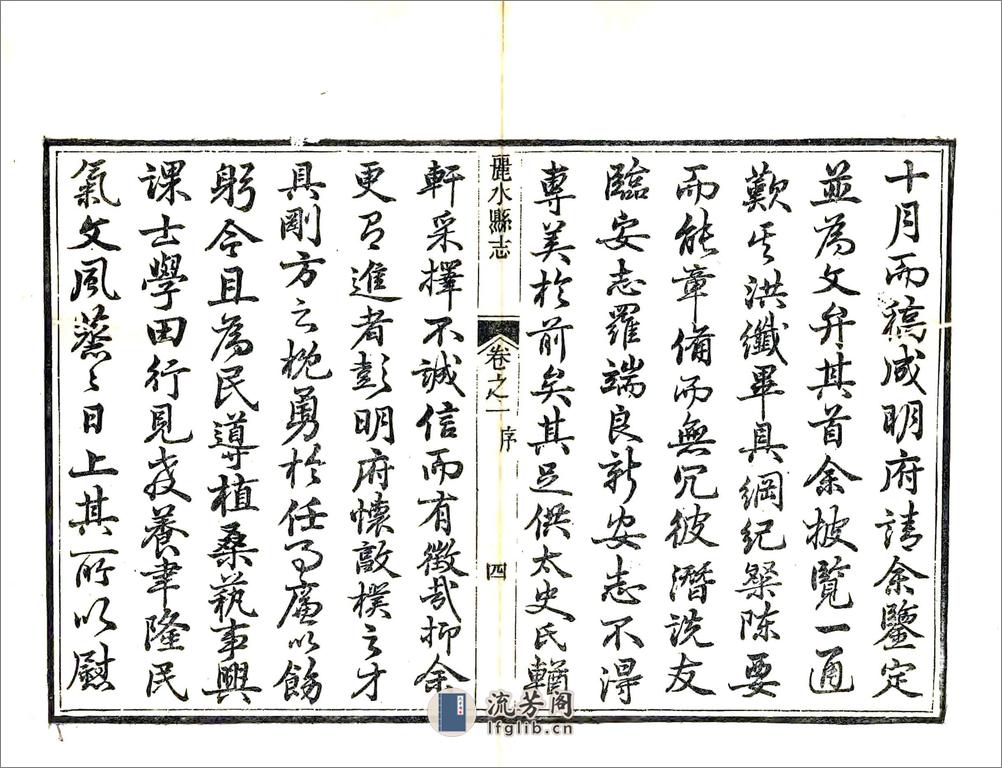 十月而稿咸明府請余鑒定
並為文弁其首余披覽一通
歎其洪纖畢具綱紀粲陳要
而能章備而無冗彼潛說友
臨安志羅端良新安志不得
專美於前矣其足供太史氏輶
麗水縣志
卷之一
序
四
軒采擇不誠信而有徵哉抑余
更有進者彭明府懷敦樸之才
具剛方之概勇於任事廉以飭
躬今且為民導植桑蓺事興
課士學田行見教養聿隆民
氣文風蒸〻日上其所以慰
流芳阁
lfglib.cn